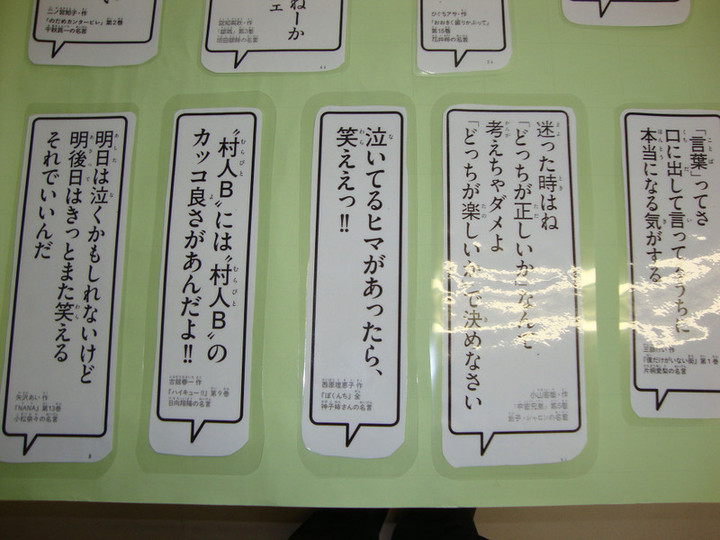 二ノ宮知子・作
『のだめカンタービレ』第2巻
千秋真一の名言
ねーか
ひぐちアサ・作
『おおきく振りかぶって』
「言葉」ってさ
口に出して言ってるうちに
本当になる気がする
三部けい・作
『僕だけがいない街』第1巻
片桐愛梨の名言
迷った時はね
「どっちが正しいか」なんて
考えちゃダメよ
「どっちが楽しいか」で決めなさい
小山宙哉・作
『宇宙兄弟』
シャロンの名言
泣いてるヒマがあったら、
笑ええっ!!
西原理恵子・作
『ぼくんち』全
神子姉さんの名言
〝村人B〟には〝村人B〟の
カッコ良さがあんだよ!!
古舘春一・作
『ハイキュー!!』第9巻
日向翔陽の名言
明日は泣くかもしれないけど
明後日はきっとまた笑える
それでいいんだ
矢沢あい・作
『NANA』第13巻
小松奈々の名言